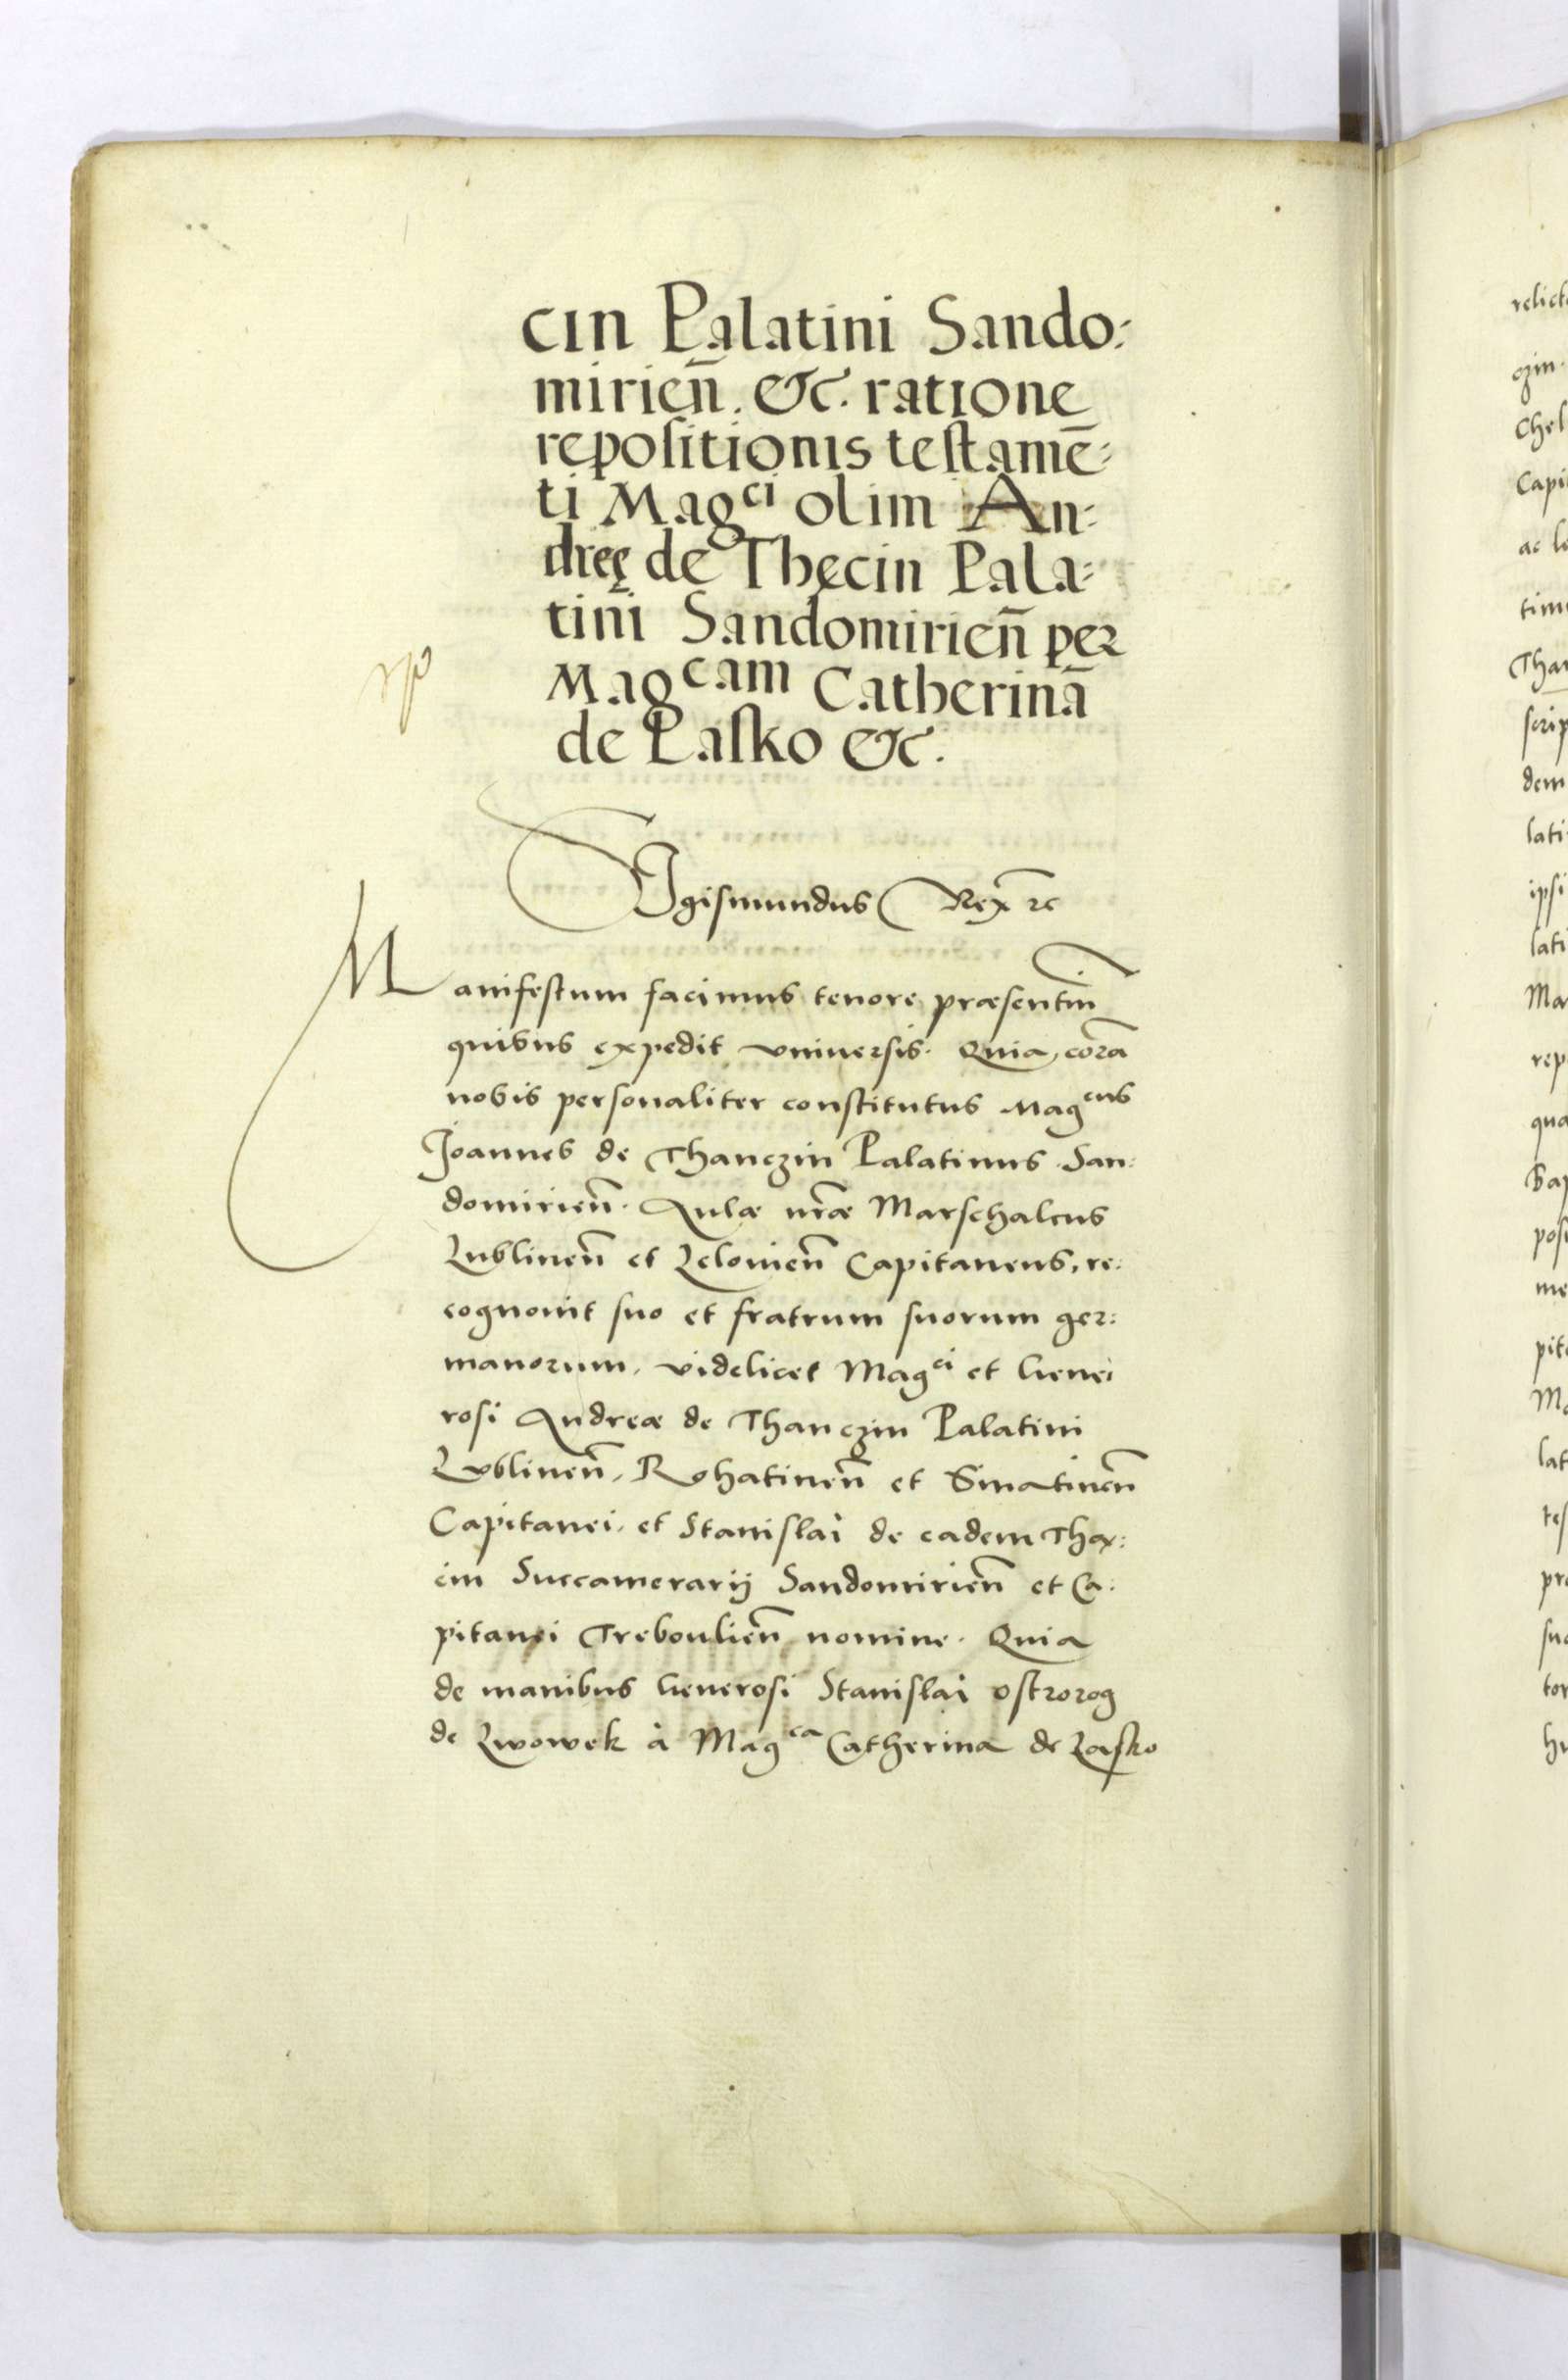 cin Palatini Sando:
mirień. &c. ratione
repoſitionis teſtamē:
ti Mag^ci olim An:
dreę de Thęcin Pala:
tini Sandomirień per
Mag^cam Catherinā
de Laſko &c.
Sigismundus Rex ꝛc
Manifestum facimus tenore præsentiū
quibus expedit vniuersis. Quia, corā
nobis personaliter constitutus Mag^cus
Joannes de Thanczin Palatinus San:
domirień. Aulæ nr̃æ Marschalcus
Lublineñ et Zelouieñ Capitaneus, re:
cognouit suo et fratrum suorum ger:
manorum, videlicet Mag^ci et Gene:
rosi Andreæ de Thanczin Palatini
Lublineñ, Rohatineñ et Sniatineñ
Capitanei, et Stanislai de eadem Tha:
cin Succamerarij Sandomirień et Ca:
pitanei Trebouliеñ nomine. Quia
de manibus Generosi Stanislai ostrorog
de Lwowek à Mag^ca Catherina de Lasko
relict
czin.
Chel
Capi
ac
tim
Tha
scrip
dem
lati
ipsi
lati
Ma
rep
qua
Sap
pos
me
pit
Ma
lat
tes
pr
su
tor